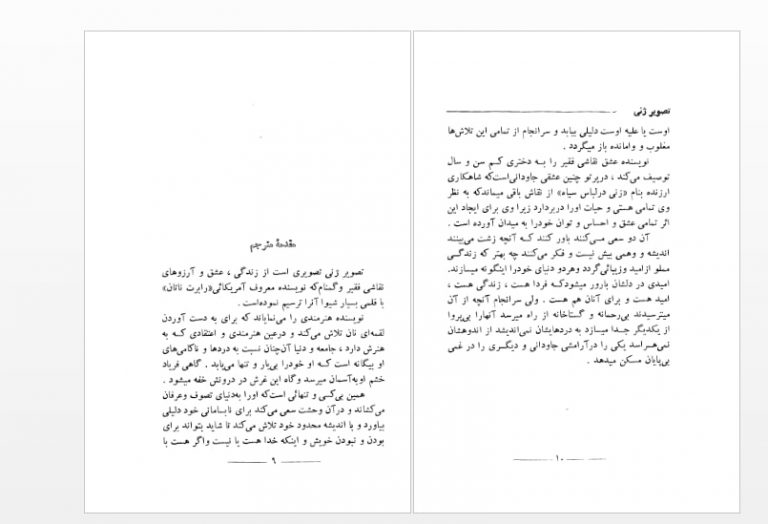 مقدمهٔ مترجم
تصویر ژنی تصویری است از زندگی ، عشق و آرزوهای
نقاشی فقیر وگمنام‌که نویسنده معروف آمریکائی«رابرت ناتان»
با قلمی بسیار شیوا آنرا ترسیم نموده‌است .
نویسنده هنرمندی را می‌نمایاند که برای به دست آوردن
لقمه‌ای نان تلاش می‌کند و درعین هنرمندی و اعتقادی که به
هنرش دارد ، جامعه و دنیا آن‌چنان نسبت به دردها و ناکامی‌های
او بیگانه است که او خودرا بی‌یار و تنها می‌یابد . گاهی فریاد
خشم اوبه‌آسمان میرسد وگاه این غرش در درونش خفه میشود .
همین بی‌کسی و تنهائی است‌که اورا به‌دنیای تصوف وعرفان
می‌کشاند و درآن وحشت سعی می‌کند برای نابسامانی خود دلیلی
بیاورد و با اندیشه محدود خود تلاش می‌کند تا شاید بتواند برای
بودن و نبودن خویش و اینکه خدا هست یا نیست واگر هست با
۹
تصویر ژنی
اوست یا علیه اوست دلیلی بیابد و سرانجام از تمامی این تلاش‌ها
مغلوب و وامانده باز میگردد .
نویسنده عشق نقاشی فقیر را بـه دختری کـم سن و سال
توصیف می‌کند ، درپرتو چنین عشقی جاودانی‌است‌که شاهکاری
ارزنده بنام «زنی درلباس سیاه» از نقاش باقی میماندکه به نظر
وی تمامی هستی و حیات اورا دربردارد زیرا وی برای ایجاد این
اثر تمامی عشق و احساس و توان خودرا به میدان آورده است .
آن دو سعی مـی‌کنند باور کنند کـه آنچه زشت می‌بینند
اندیشه و وهمی بیش نیست و فکر می‌کنند چه بهتر که زندگـی
مملو ازامید وزیبائی‌گردد وهردو دنیای خودرا اینگونه میسازند.
امیدی در دلشان بارور میشودکـه فردا هست ، زندگی هست ،
امید هست و برای آنان هم هست . ولی سرانجام آنچه از آن
میترسیدند بی‌رحمانه و گستاخانه از راه میرسد آنهارا بی‌پروا
از یکدیگر جدا میسازد به دردهایشان نمی‌اندیشد از اندوهشان
نمی‌هـراسد یکی را درآرامشی جاودانی و دیگـری را در غمی
بی‌پایان مسکن میدهد .
۱۰